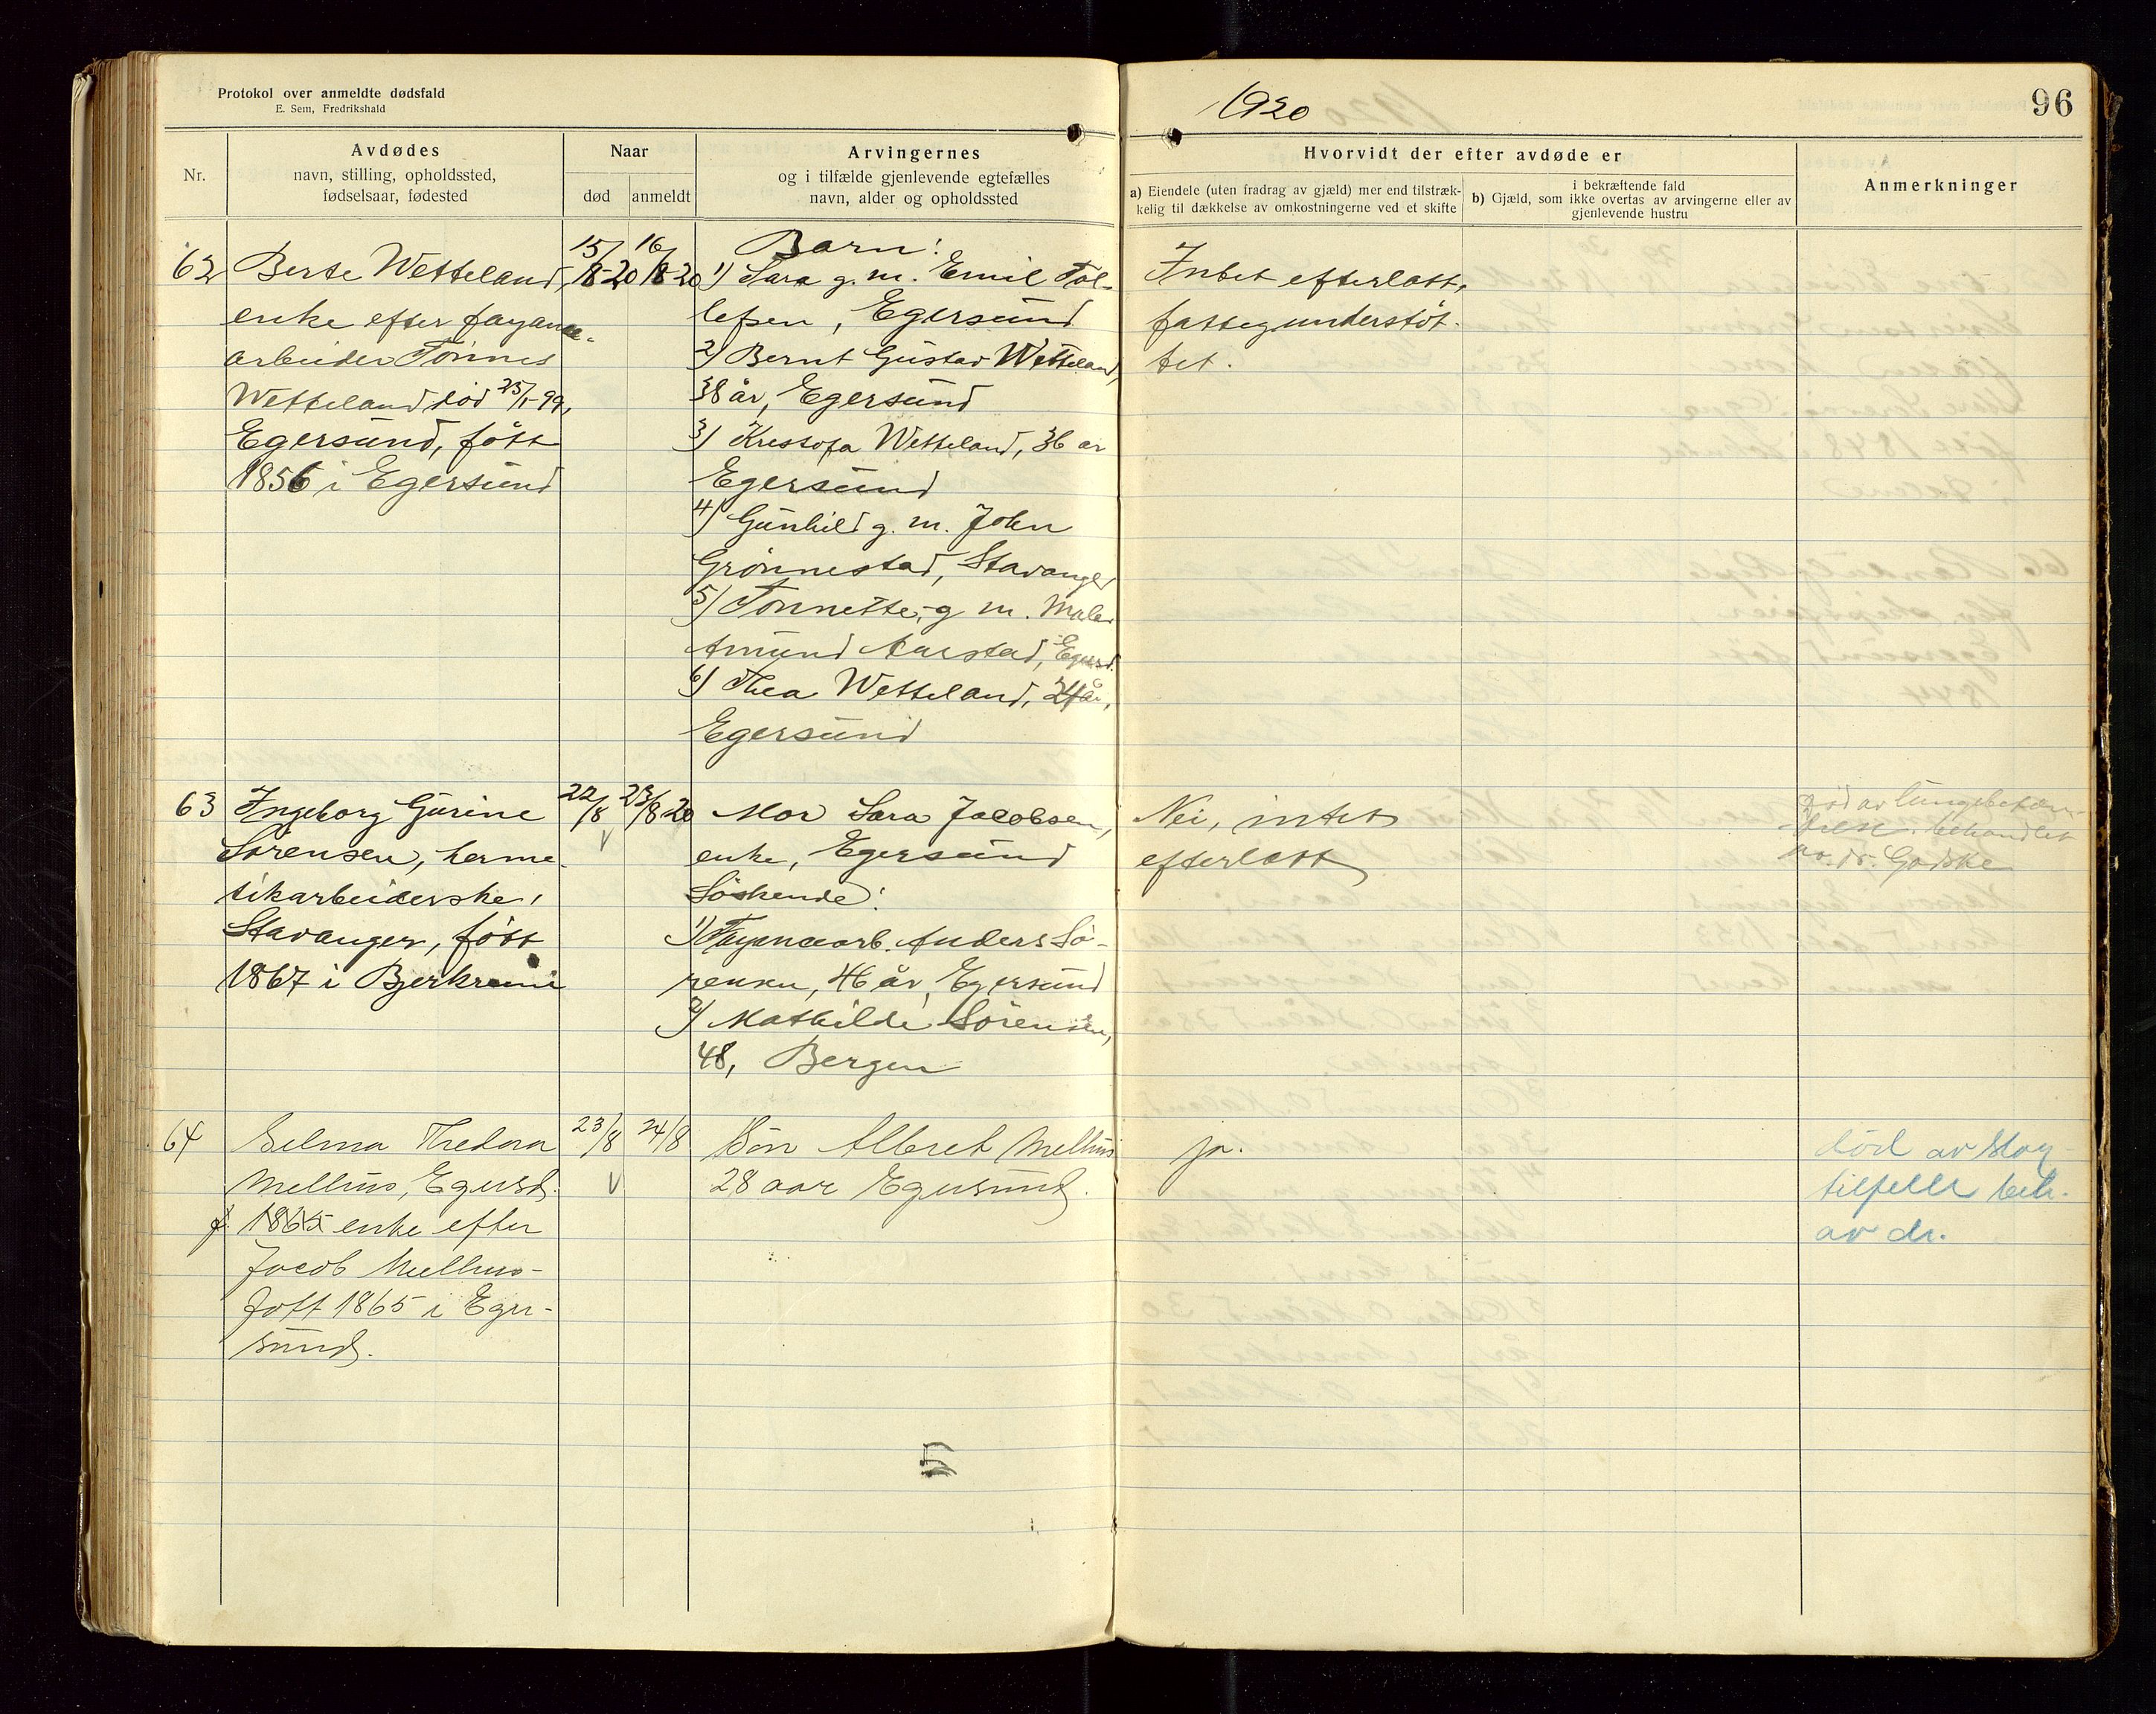 Protokol over anmeldte dødsfald
E. Sem, Fredrikshald
1920
96
Nr.
Avdødes
navn, stilling, opholdssted,
fødselsaar, fødested
Naar
død
anmeldt
Arvingernes
og i tilfælde gjenlevende egtefælles
navn, alder og opholdssted
Hvorvidt der efter avdøde er
a) Eiendele (uten fradrag av gjæld) mer end tilstræk-
kelig til dækkelse av omkostningerne ved et skifte
i bekræftende fald
b) Gjæld, som ikke overtas av arvingerne eller av
gjenlevende hustru
Anmerkninger
62
Berte Wetteland,
enke efter fayance-
arbeider Tönnes
Wetteland död 25/1-99,
Egersund, fött
1856 i Egersund
15/8-20
16/8-20
Barn:
1) Sara g. m. Emil Tol-
lefsen, Egersund
2) Bernt Gustav Wetteland,
38 år, Egersund
3) Kristofa Wetteland, 36 år
Egersund
4) Gunhild g. m. John
Grönnestad, Stavanger
5) Tonnette, g. m. Maler
Amund Aarstad, Egersd.
6) Thea Wetteland, 24 år,
Egersund
Intet efterlatt,
fattigunderstöt-
tet.
63
Ingeborg Gurine
Sörensen, herme-
tikarbeiderske,
Stavanger, fött
1867 i Bjerkreim
22/8
V
23/8-20
Mor Sara Jacobsen,
enke, Egersund
Söskende:
1) Fayancearb. Anders Sö-
rensen, 46 år, Egersund
2) Mathilde Sörensen,
48, Bergen
Nei, intet
efterlatt
död av lungebeten-
delse. behandlet
av dr. Godske
64
Selma Thedora
Mellius, Egersd.
f. 1865 enke efter
Jacob Mellius-
Fött 1865 i Eger-
sund.
23/8
V
24/8
Sön Albret Mellius
28 aar Egersund.
ja.
död av slag-
tilfelle beh.
av dr.
5